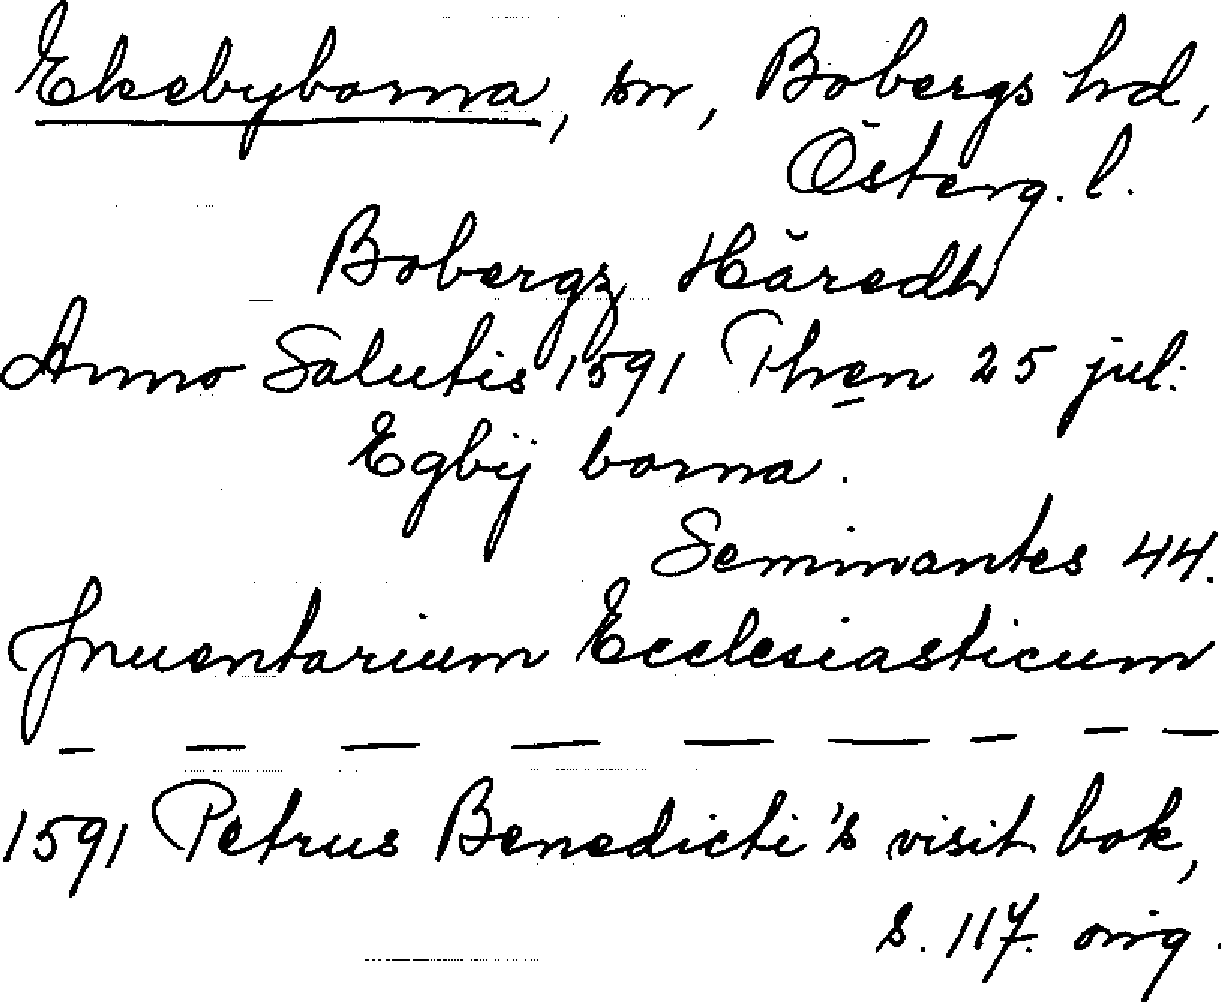 Ekebyborna, sn, Bobergs hd,
Österg. l.
Bobergz Häredh
Anno Salutis 1591 Then 25 jul:
Egbÿ borna.
Seminantes 44.
Inuentarium Ecclesiasticum
— — — — — — — — —
1591 Petrus Benedicti's visit. bok,
s. 117. orig.